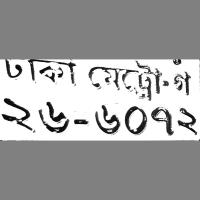 ঢাকা মেট্রো-গ
২৬-৬০৭২